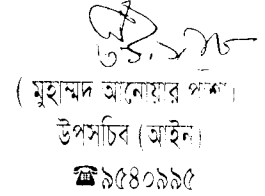 ( মুহাম্মদ আনোয়ার পাশা
উপসচিব (আইন)
☎৯৫৪০৯৯৫